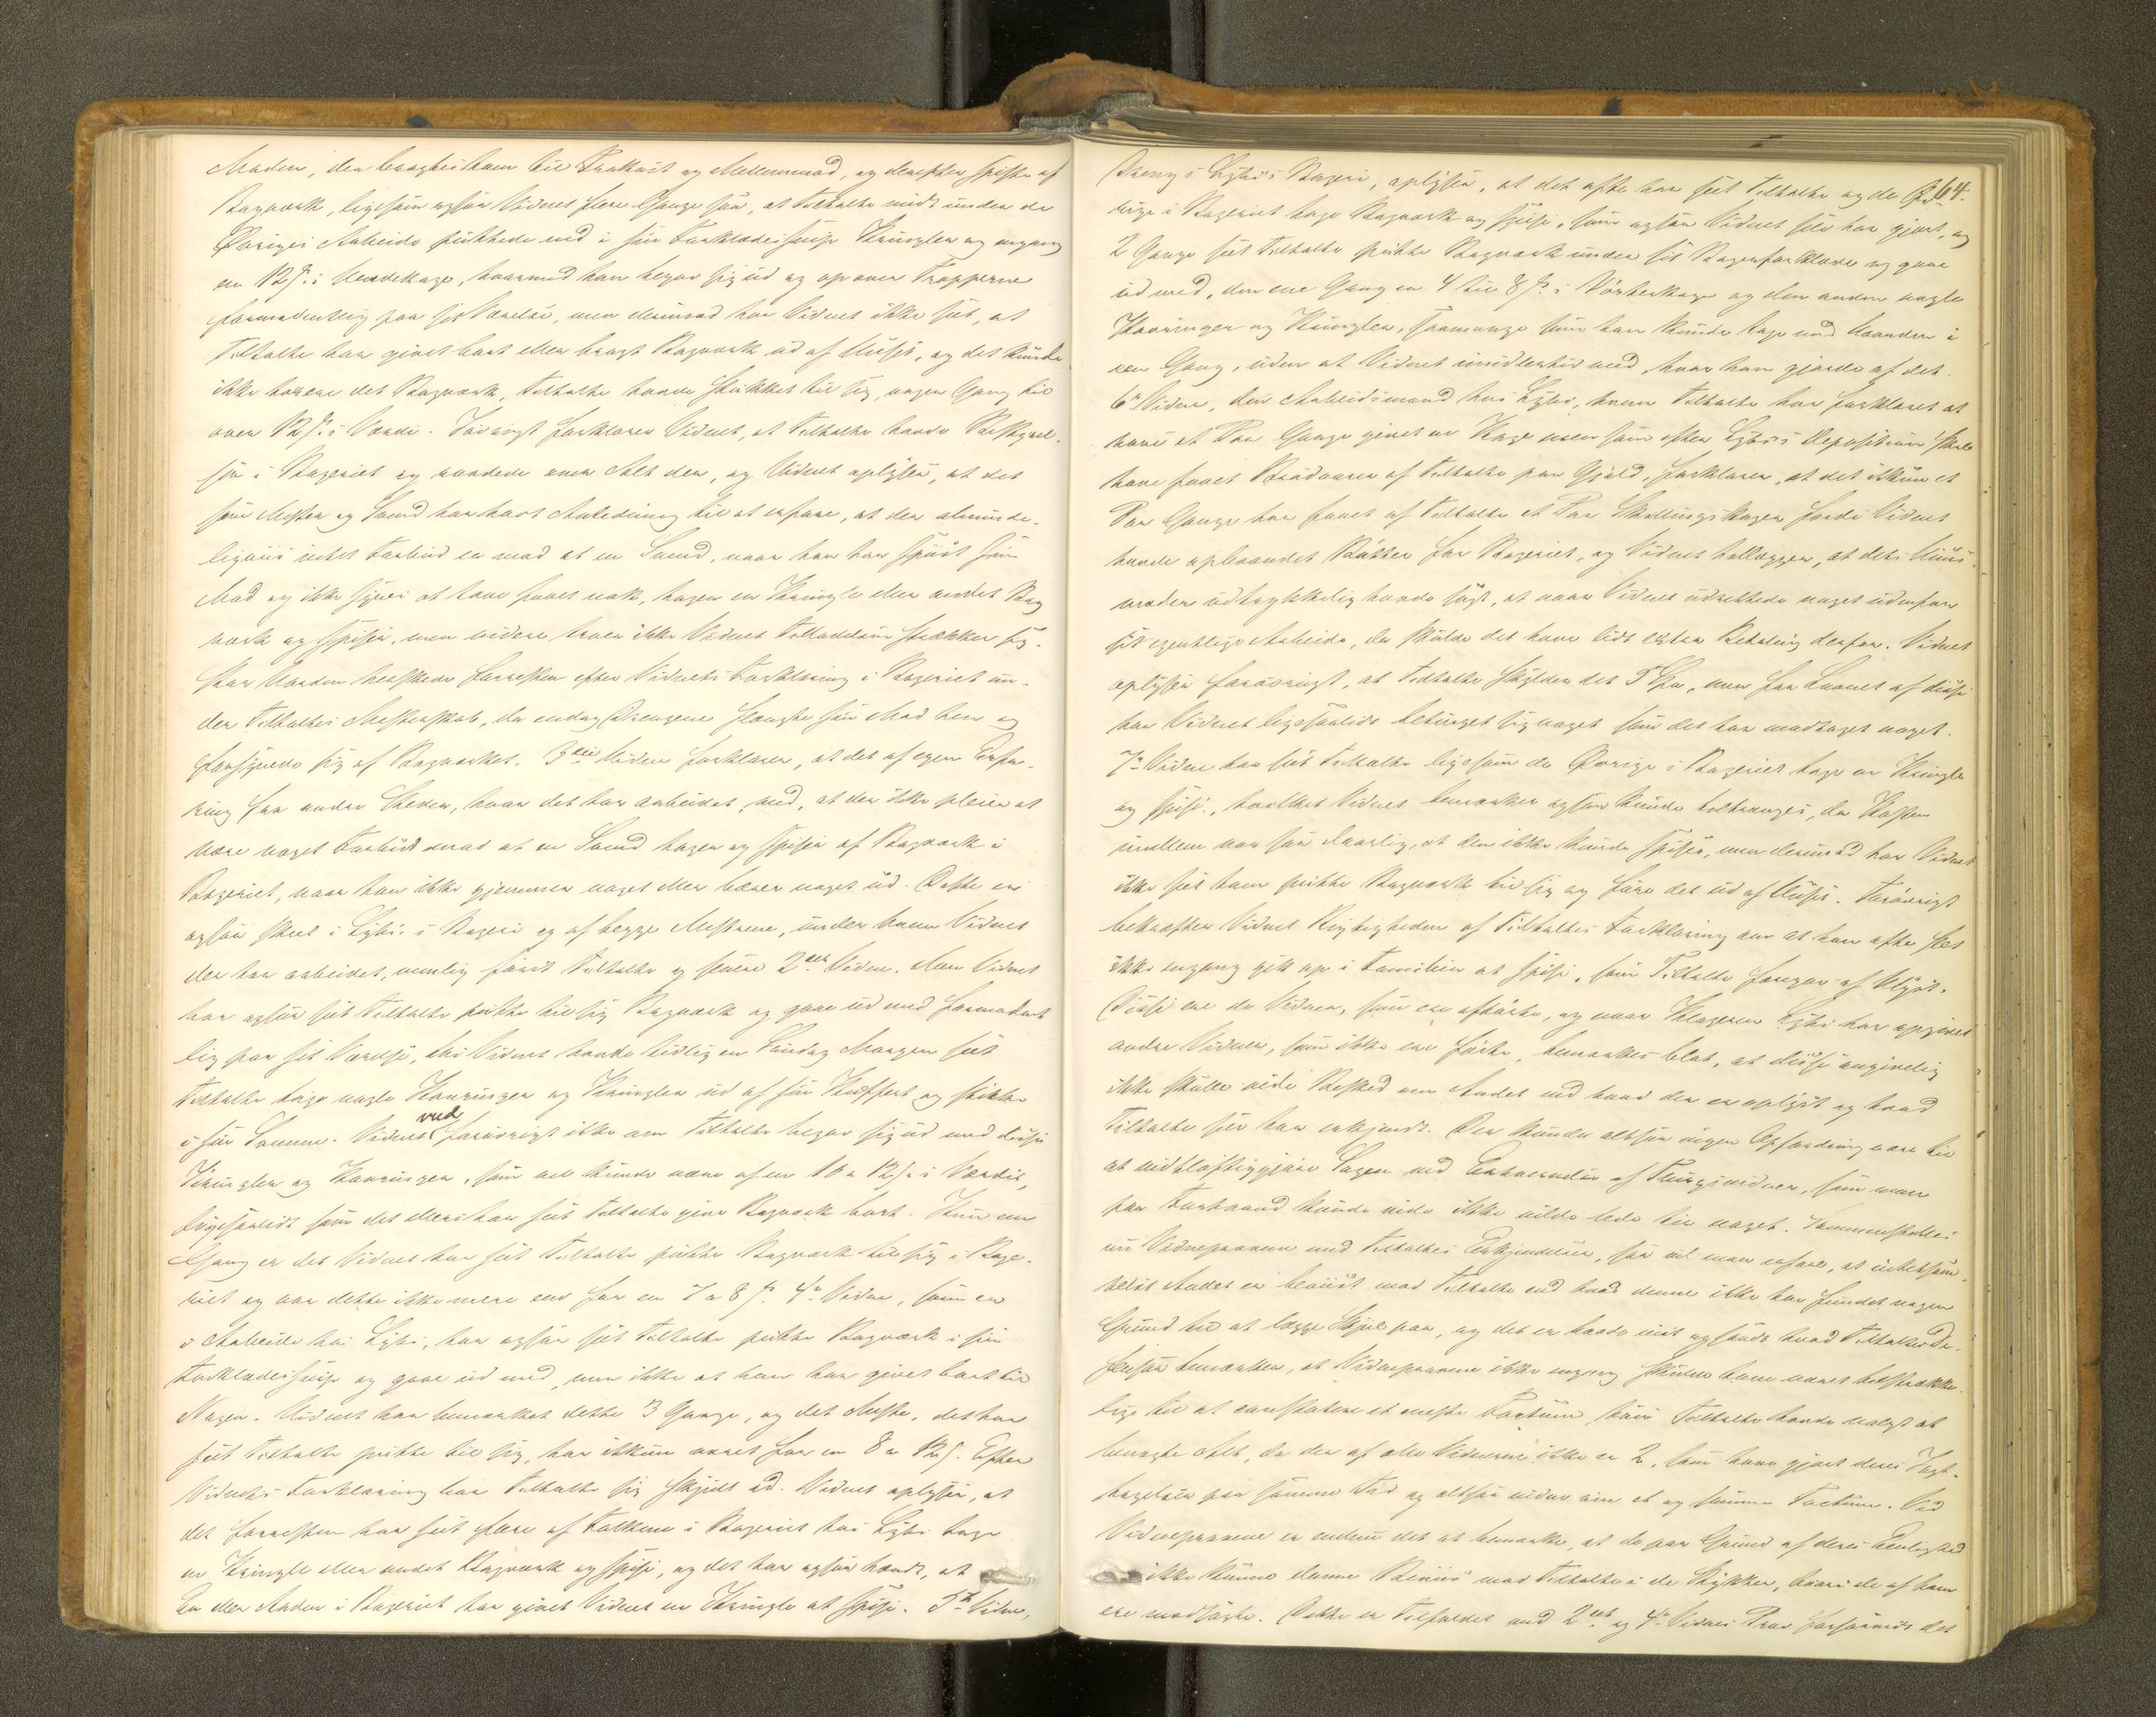 Maden, der bragtes ham til Frokost og Mellemmad, og derefter spiste af
Bagværk, ligesom ogsaa Vidnet flere Gange saa, at Tiltalte midt under de
Øvriges Arbeide puttede ned i sin Forklædesnip Kringler og engang
en 12 s. i Hvedekage, hvormed han begav sig ud og op over Trapperne
formodentlig paa sit Værelse, men derimod har Vidnet ikke seet, at
Tiltalte har givet bort eller bragt Bagværk ud af Huset, og det kunde
ikke være det Bagværk, Tiltalte havde stukket til sig, nogen Gang til
over 12 s. i Værdi. Forøvrigt forklarer Vidnet, at Tiltalte havde Bestyrel-
sen i Bageriet og raadede over Alt der, og Vidnet oplyser, at det
som Mester og Svend har havt Anledning til at erfare, at der alminde-
ligviis intet Forbud er mod at en Svend, naar han har spiist sin
Mad og ikke synes at have faaet nok, tager en Kringle eller andet Bag
værk og spiser, men videre troer ikke Vidnet Tilladelsen strækker sig.
Stor Uorden herskede forresten efter Vidnets Forklaring i Bageriet un-
der Tiltaltes Mesterskab, da endog Drengene slængte sin Mad hen og
forsynede sig af Bagværket. 3die Vidne forklarer, at det af egen Erfa-
ring fra andre Steder, hvor det har arbeidet, veed, at der ikke pleier at
være noget Forbud mod at en Svend tager og spiser af Bagværk i
Bageriet, naar han ikke gjemmer noget eller bærer noget ud. Dette er
ogsaa skeet i Lybs Bageri og af begge Mestrene, under hvem Vidnet
der har arbeidet, nemlig først Tiltalte og siden 2det Vidne. Men Vidnet
har ogsaa seet Tiltalte putte til sig Bagværk og gaae ud med formodent
lig paa sit Værelse, thi Vidnet havde tidlig en Søndag Morgen seet
Tiltalte tage nogle Kavringer og Kringler ud af sin Kuffert og stikke
i sin Lomme. Vidnet veed forøvrigt ikke om Tiltalte begav sig ud med disse
Kringler og Kavringer, som vel kunde være af en 10 a 12 s. i Værdi,
ligesaalidt som det ellers har seet Tiltalte give Bagværk bort. Kun een
Gang er det Vidnet har seet Tiltalte putte Bagværk til sig i Bage-
riet og var dette ikke mere end for en 7 a 8 s. 4de Vidne, som er
i Arbeide hos Lybs, har ogsaa seet Tiltalte putte Bagværk i sin
Forklædesnip og gaae ud med, men ikke at han har givet bort til
Nogen. Vidnet har bemærket dette 3 Gange, og det Meste, det har
seet Tiltalte putte til sig, har ikkun været for en 8 a 12 s. Efter
Vidnets Forklaring har Tiltalte sig skjult ad. Vidnet oplyser, at
det forresten har seet flere af Folkene i Bageriet hos Lybs tage
en Kringle eller andet Bagværk og spise, og det har ogsaa hændt, at
En eller Anden i Bageriet har givet Vidnet en Kringle at spise. 5te Vidne,
64.
Dreng i Lybs's Bageri, oplyser, at det ofte har seet Tiltalte og de Øv-
rige i Bageriet tage Bagværk og spise, som ogsaa Vidnet selv har gjort, og
2 Gange seet Tiltalte putte Bagværk under sit Bagerforklæde og gaae
ud med, den ene Gang en 4 til 8 s. i Vørterkage og den anden nogle
Kavringer og Kringler, saamange som han kunde tage med Haanden i
een Gang, uden at Vidnet imidlertid veed, hvor han gjorde af det.
6te Vidne, den Arbeidsmand hos Lybs, hvem Tiltalte har forklaret at
have et Par Gange givet en Kage men som efter Lybs's Deposition skal
have faaet Brødvarer af Tiltalte paa Gjæld, forklarer, at det ikkun et
Par Gange har faaet af Tiltalte et Par Skillingskager fordi Vidnet
havde opbaaret Bøtter for Bageriet, og Vidnet tillægger, at dets Huus-
moder udtrykkelig havde sagt, at naar Vidnet udrettede noget udenfor
sit egentlige Arbeide, da skulde det have lidt extra Betaling derfor. Vidnet
oplyser forøvrigt, at Tiltalte skylder det 5 Spd., men for Laanet af disse
har Vidnet ligesaalidt betinget sig noget som det har modtaget noget.
7de Vidne har seet Tiltalte ligesom de Øvrige i Bageriet tage en Kringle
og spise, hvilket Vidnet bemærker ogsaa kunde tiltrænges, da Kosten
imellem var saa daarlig, at den ikke kunde spises, men derimod har Vidnet
ikke seet ham putte Bagværk til sig og føre det ud af Huset. Forøvrigt
bekræfter Vidnet Rigtigheden af Tiltaltes Forklaring om at han ofte slet
ikke engang gik op i Familien at spise, som Tiltalte foregav af
Disse ere de Vidner, som ere afhørte, og naar Klageren Lybs har opgivet
andre Vidner, som ikke ere førte, bemærkes blot, at disse angivelig
ikke skulle vide Besked om Andet end hvad der er oplyst og hvad
Tiltalte selv har erkjendt. Der kunde altsaa ingen Opfordring være til
at vidtløftiggjøre Sagen ved af Thingsvidner, som man
paa Forhaand kunde vide ikke vilde lede til noget. Sammenstilles
nu Vidneprovene med Tiltaltes Erkjendelse, saa vil man erfare, at intetsom-
helst Andet er beviist mod Tiltalte end hvad denne ikke har fundet nogen
Grund til at lægge Skjul paa, og det er baade viist og sandt hvad Tiltaltes De-
fensor bemærker, at Vidneprovene ikke engang skulde have været tilstrække-
lige til at constatere et eneste Factum hvis Tiltalte havde valgt at
benægte Alt, da der af alle Vidnerne ikke er 2, som have gjort deres Iagt-
tagelser paa samme Tid og altsaa vidne om et og samme Factum. Ved
Vidneprovene er endnu det at bemærke, at de paa Grund af deres Eenlighed
ikke kunne danne Beviis mod Tiltalte i de Stykker, hvori de af ham
ere modsagte. Dette er Tilfældet med 2det og 4de Vidnes Prov forsaavidt det